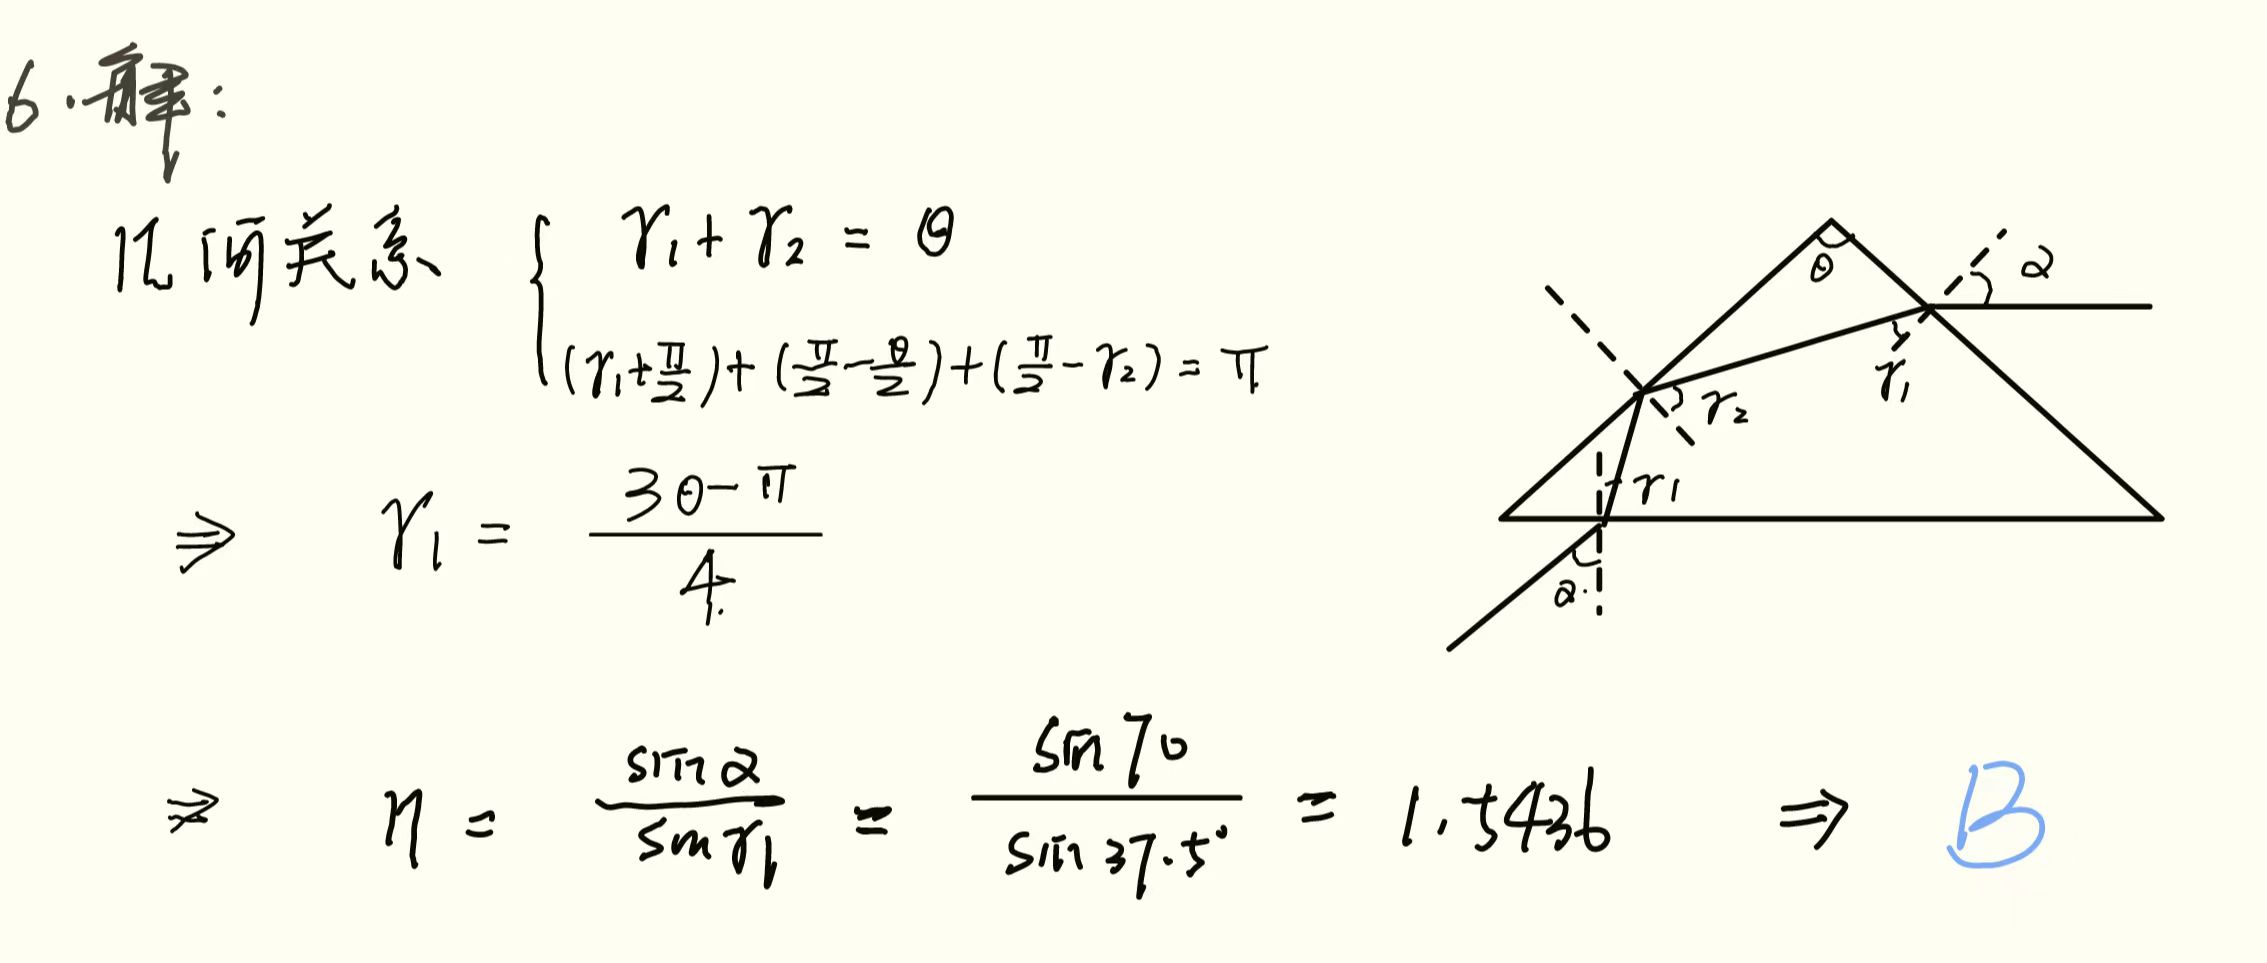 6. 解:
几何关系 { γ₁ + γ₂ = θ
(γ₁+π/2)+(π/2-θ/2)+(π/2-γ₂)=π
⇒ γ₁ = (3θ-π)/4
⇒ n = sinα/sinγ₁ = sin70/sin37.5° = 1.5436 ⇒ B
θ
α
γ₁
γ₂
γ₁
α